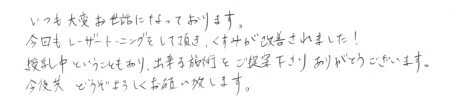 いつも大変お世話になっております。
今回もレーザートーニングをして頂き、くすみが改善されました!
授乳中ということもあり、出来る施術をご提案下さりありがとうございます。
今後共 どうぞよろしくお願い致します。